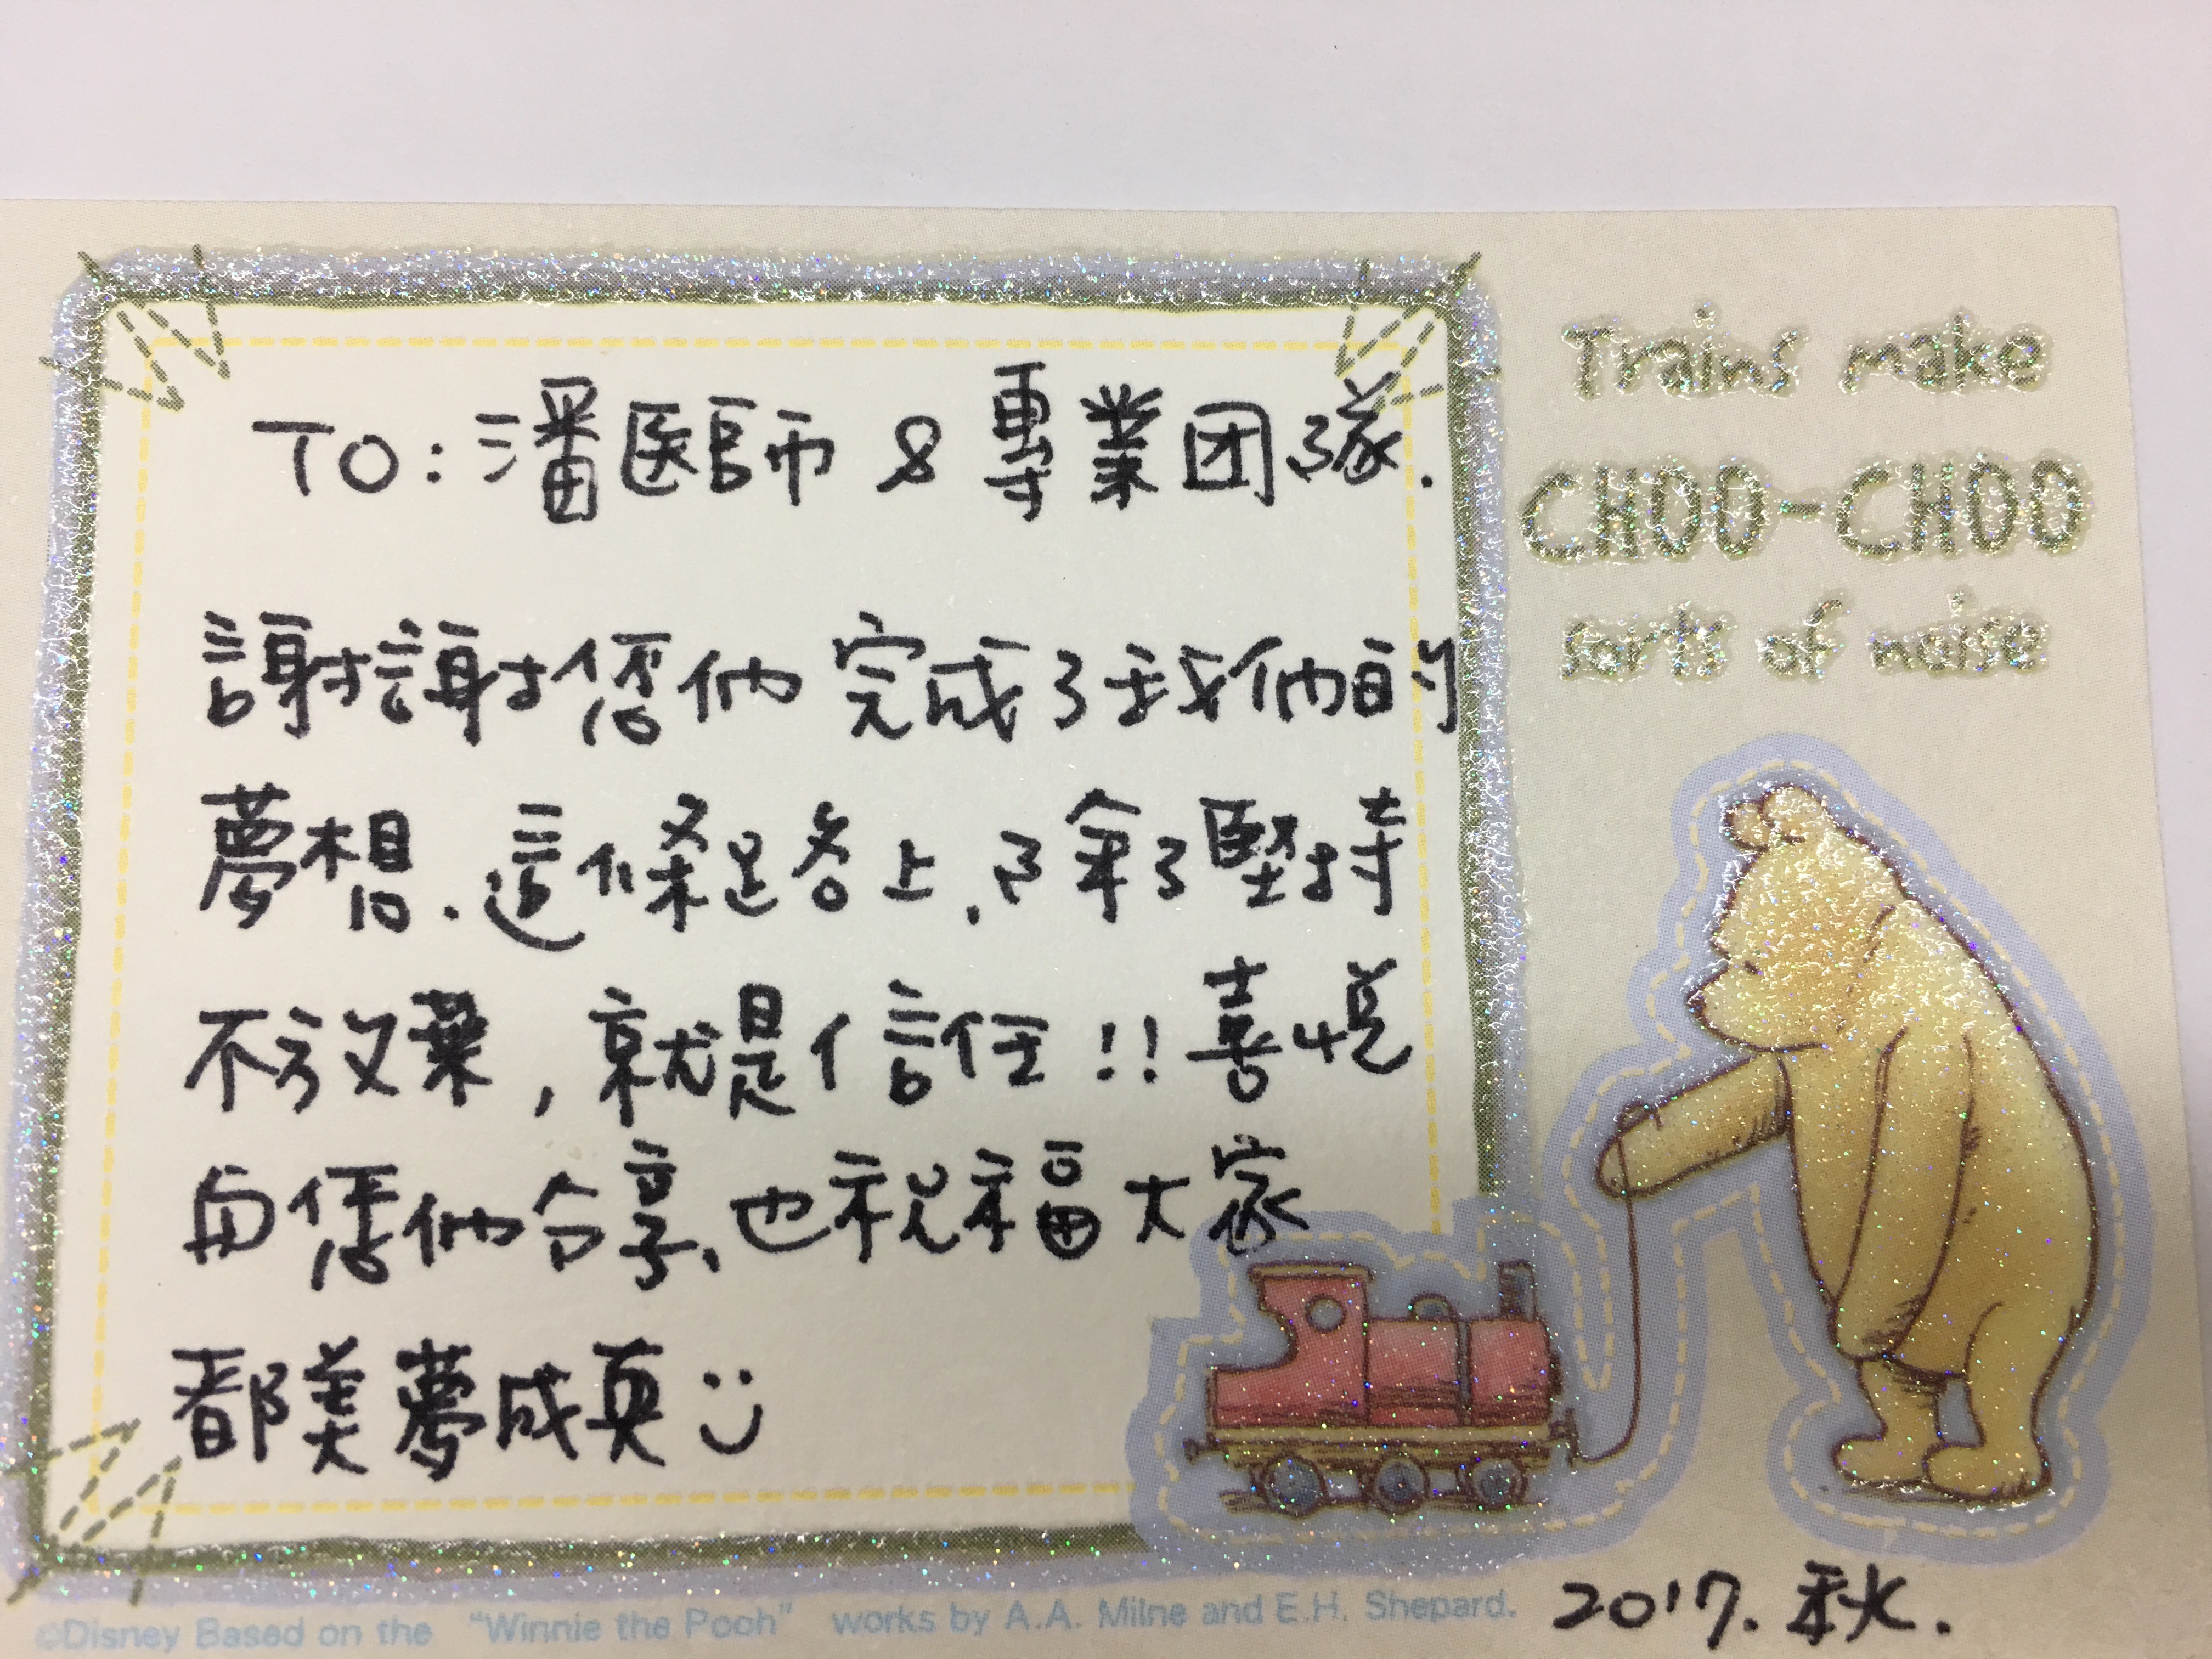 TO: 潘医師 & 專業团隊.
謝謝您們完成了我們的
夢想. 這條路上, 除了堅持
不放棄, 就是信任!! 喜悅
與您們分享, 也祝福大家
都美夢成真
Trains make
CHOO-CHOO
sorts of noise
©Disney Based on the "Winnie the Pooh" works by A.A. Milne and E.H. Shepard.
2017. 秋.